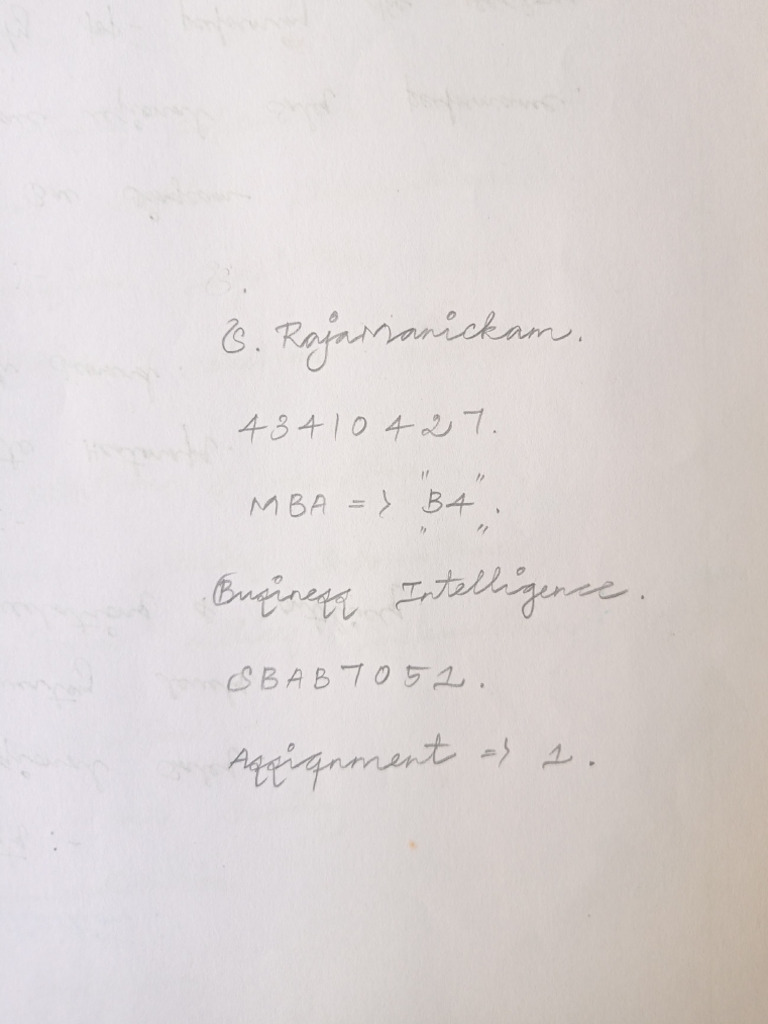 S. Rajamanickam.
43410427.
MBA => "B4".
Business Intelligence.
SBAB7051.
Assignment => 1.